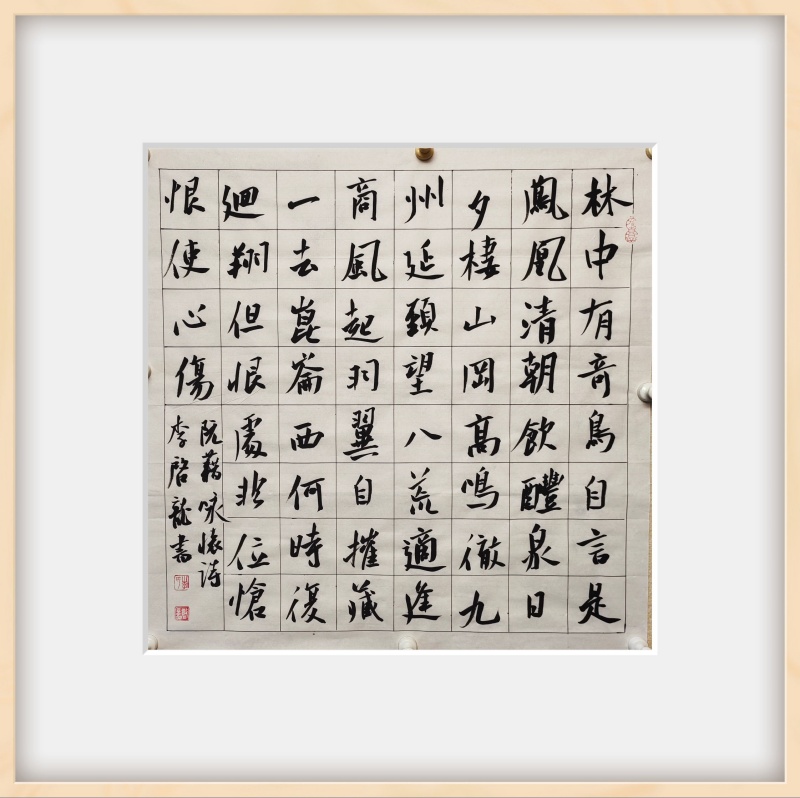 林中有奇鳥自言是
鳳凰清朝飲醴泉日
夕棲山岡高鳴徹九
州延頸望八荒適逢
商風起羽翼自摧藏
一去崑崙西何時復
廻翔但恨處非位愴
恨使心傷
阮藉咏懷詩
李啓龍書